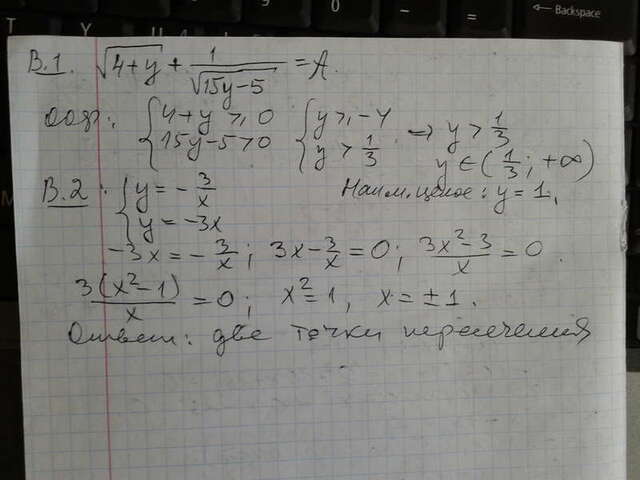 ← Backspace
В.1. √(4+y) + 1/√(15y-5) = A.
ООФ: { 4+y ⩾ 0 { y ⩾ -4 ⇒ y > 1/3
{ 15y-5 > 0 { y > 1/3 y ∈ (1/3; +∞)
В.2: { y = -3/x Наим. целое: y = 1.
{ y = -3x
-3x = -3/x; 3x - 3/x = 0; (3x²-3)/x = 0.
3(x²-1)/x = 0; x² = 1, x = ±1.
Ответ: две точки пересечения